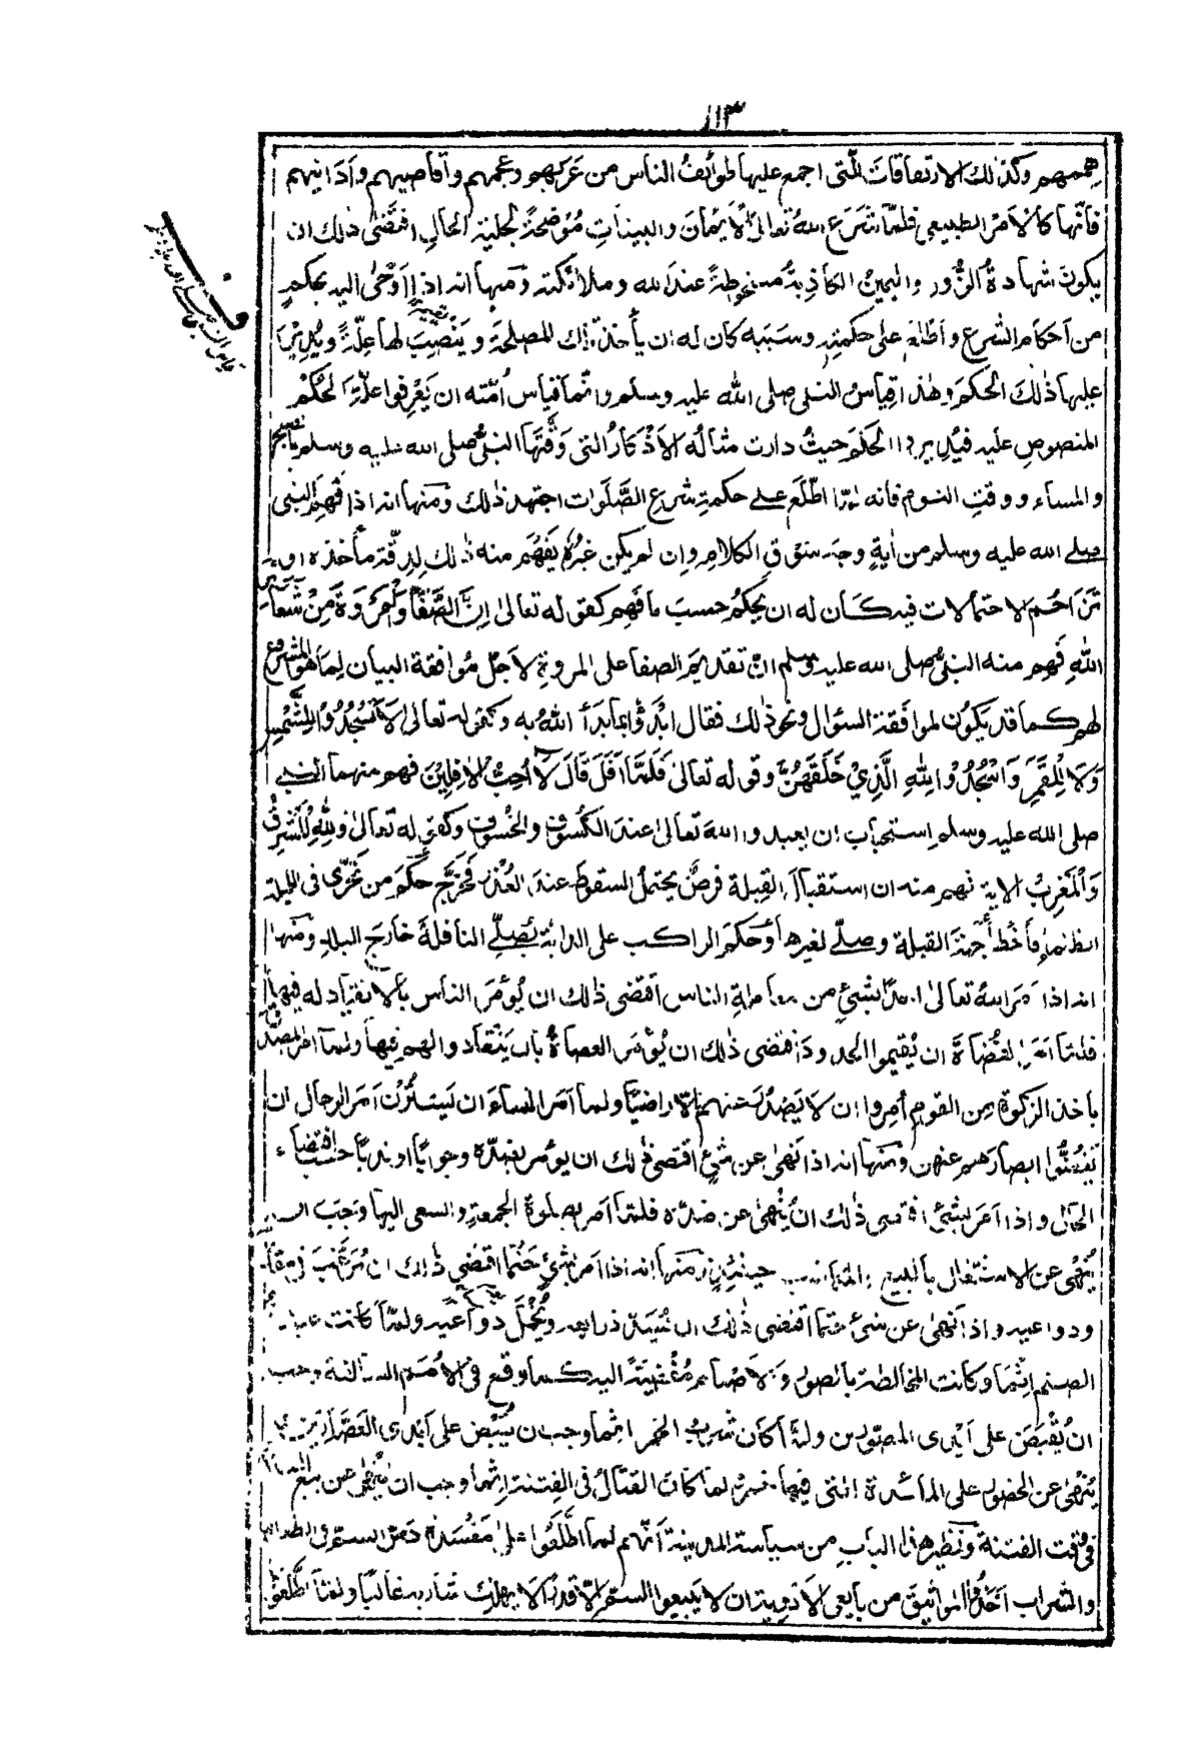 ١١٣
هممهم وكذلك الارتفاقات التى اجمع عليها طوائف الناس من عربهم وعجمهم واقاصيهم وادانيهم
فانها كالامر الطبيعى فلما شرع الله تعالى الايمان والبينات موضحة لجلية الحال اقتضى ذلك ان
يكون شهادة الزور واليمين الكاذبة مسخوطة عند الله وملائكته ومنها انه اذا اوحى اليه بحكم
من احكام الشرع واطلع على حكمته وسببه كان له ان يأخذ تلك المصلحة وينصب لها علة ويدير
عليها ذلك الحكم وهذا قياس النبى صلى الله عليه وسلم وانما قياس امته ان يعرفوا علة الحكم
المنصوص عليه فيديروا الحكم حيث دارت مثاله الاذكار التى وقتها النبى صلى الله عليه وسلم بالصبح
والمساء ووقت النوم فانه لما اطلع على حكمة شرع الصلوات اجتهد ذلك ومنها انه اذا فهم النبى
صلى الله عليه وسلم من آية وجه سوق الكلام وان لم يكن غيره يفهم منه ذلك لدقة مأخذه او
تزاحم الاحتمالات فيه كان له ان يحكم حسب ما فهم كقوله تعالى ان الصفا والمروة من شعائر
الله فهم منه النبى صلى الله عليه وسلم ان تقديم الصفا على المروة لاجل موافقة البيان لما هو المشروع
لهم كما قد يكون لموافقة السؤال ونحو ذلك فقال ابدؤا بما بدأ الله به وكقوله تعالى لا تسجدوا للشمس
ولا للقمر واسجدوا لله الذي خلقهن وقوله تعالى فلما افل قال لا احب الافلين فهم منهما النبى
صلى الله عليه وسلم استحباب ان يعبدوا الله تعالى عند الكسوف والخسوف وكقوله تعالى ولله المشرق
والمغرب الاية فهم منه ان استقبال القبلة فرض يحتمل السقوط عند العذر فخرج حكم من تحرى فى الليلة
الظلماء فاخطأ جهة القبلة وصلى لغيرها وحكم الراكب على الدابة يصلى النافلة خارج البلد ومنها
انه اذا امر الله تعالى احدا بشئ من معاملة الناس اقتضى ذلك ان يؤمر الناس بالانقياد له فيها
فلما امر القضاة ان يقيموا الحدود اقتضى ذلك ان يؤمر العصاة بان ينقادوا لهم فيها ولما امر المصدق
باخذ الزكوة من القوم امروا ان لا يصدر عنهم الا راضيا ولما امر النساء ان يستترن امر الرجال ان
يغضوا ابصارهم عنهن ومنها انه اذا نهى عن شئ اقتضى ذلك ان يؤمر بضده وجوبا او ندبا حسب اقتضاء
الحال واذا امر بشئ اقتضى ذلك ان ينهى عن ضده فلما امر بصلوة الجمعة والسعى اليها وجب ان
ينهى عن الاشتغال بالبيع والمكاسب حينئذ ومنها انه اذا امر بشئ حتما اقتضى ذلك ان يرغب فى
ودواعيه واذا نهى عن شئ حتما اقتضى ذلك ان يسد ذرايعه ويخمل دواعيه ولما كانت عبادة
الصنم اثما وكانت المخالطة بالصور والاصنام مفضية اليه كما وقع فى الامم السالفة وجب
ان يقبض على ايدى المصورين ولما كان شرب الخمر اثما وجب ان يقبض على ايدى العصارين
ينهى عن الحضور على المائدة التى فيها خمر ولما كان القتال فى الفتنة اثما وجب ان ينهى عن بيع السلاح
فى وقت الفتنة ونظير هذا الباب من سياسة المدينة انهم لما اطلعوا على مفسدة دس السم فى الطعام
والشراب اخذوا المواثيق من بايعى الادوية ان لا يبيعوا السم الا قدرا لا يهلك شاربه غالبا ولما اطلعوا